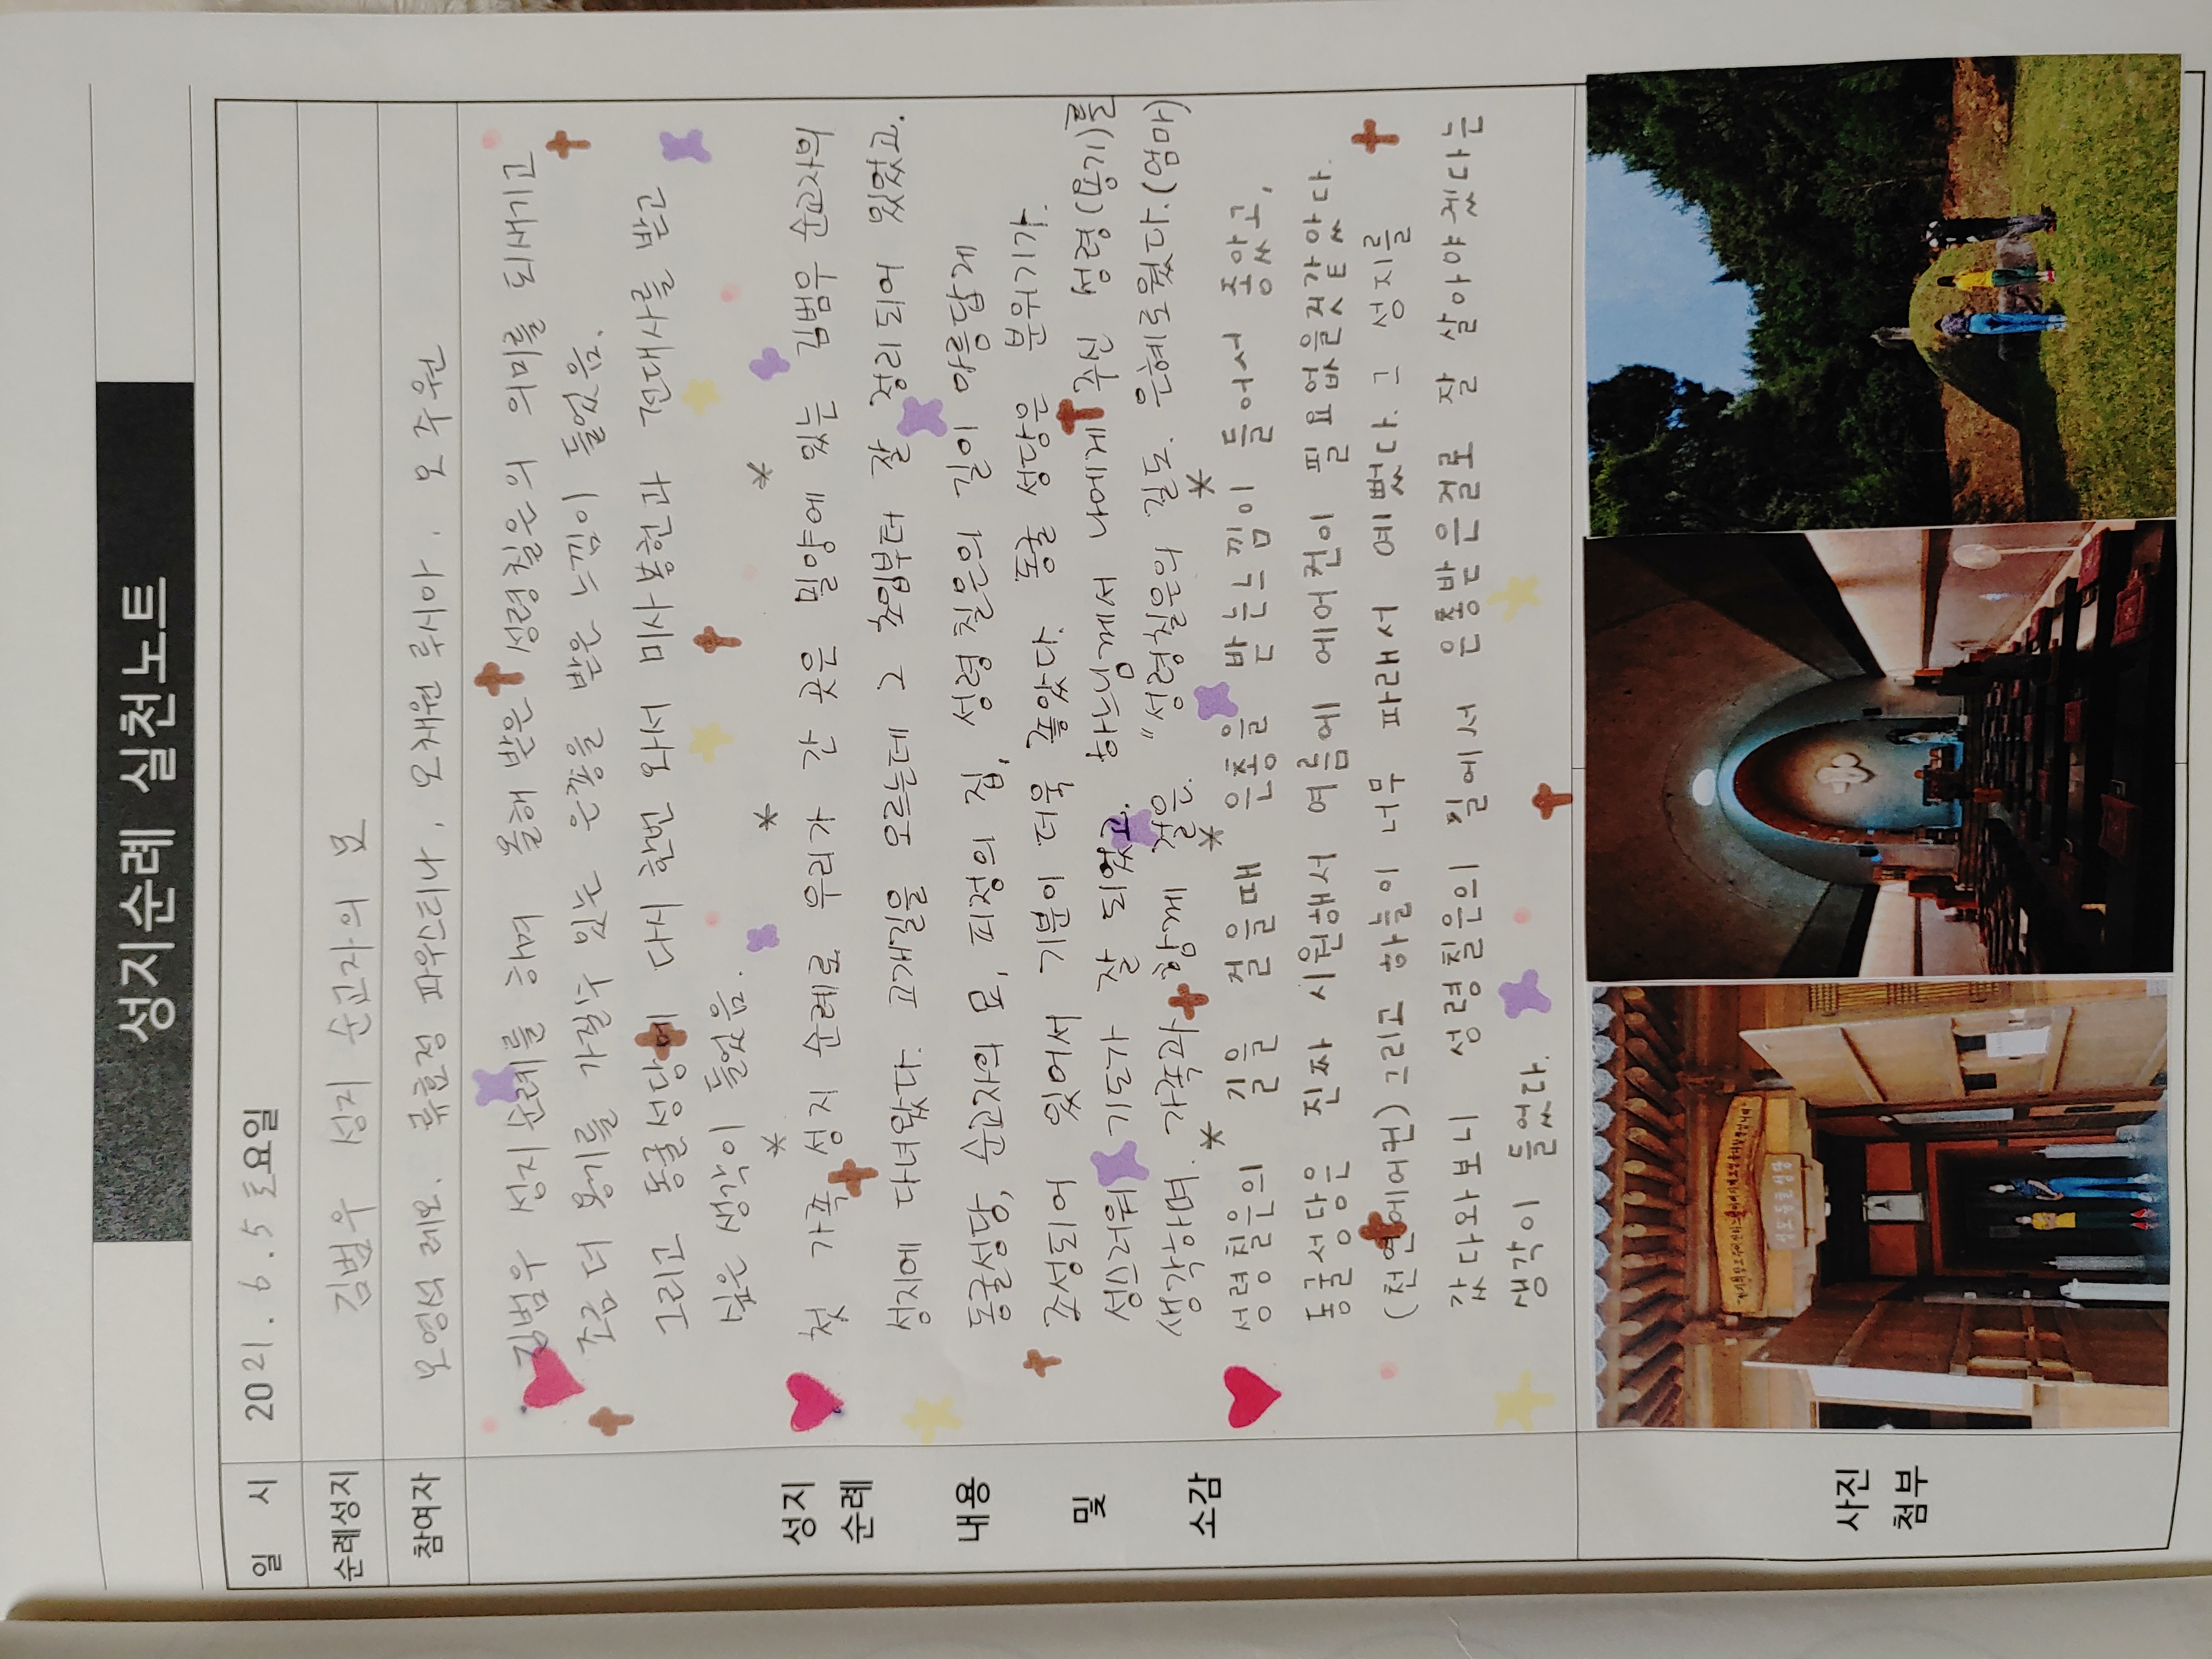 성지순례 실천노트
일 시 2021. 6. 5 토요일
순례성지 김범우 성지 순교자의 묘
참여자 오영석 레오. 류효정 파우스티나, 오채원 루시아, 오주원
김범우 성지순례를 하며 올해 받은 성령칠은의 의미를 되새기고
조금 더 용기를 가질수 있는 은총을 받은 느낌이 들었음.
그리고 동굴성당에 다시 한번 와서 미사봉헌과 전대사를 받고
싶은 생각이 들었음.
* * *
첫 가족 성지 순례로 우리가 간 곳은 밀양에 있는 김범우 순교자의
성지에 다녀왔다. 고개길을 오르는데 그 초입부터 잘 정리되어 있었고.
동굴성당, 순교자의 묘, 피정의 집, 성령칠은의 길이 아름답게
조성되어 있어서 기분이 더욱 좋았다. 동굴 성당은 분위기가
성스러워 기도가 잘 되었고. 하느님께서 나에게 주신 성령(용기)를
생각하며. 가족과 함께 걸은. "성령칠은의 길도. 은혜로웠다.(엄마)
* * *
성령칠은의 길을 걸을때 은총을 받는느낌이 들어서 좋았고,
동굴성당은 진짜 시원해서 여름에 에어컨이 필요없을것같았다.
(천연에어컨) 그리고 하늘이 너무 파래서 예뻤다. 그 성지를
갔다와보니 성령칠은의 길에서 은총받은걸로 잘 살아야겠다는
생각이 들었다.
성지
순례
내용
및
소감
성모동굴성당
사진
첨부